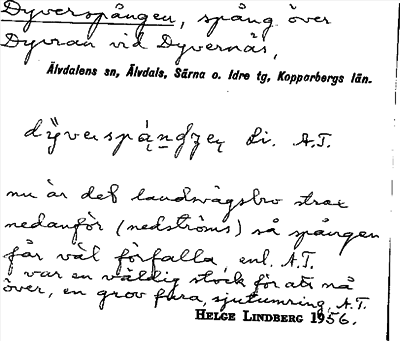 Dyverspången, spång över
Dyvran vid Dyvernäs,
Älvdalens sn, Älvdals, Särna o. Idre tg, Kopparbergs län.
Li. A.T.
nu är det landsvägsbro strax
nedanför (nedströms) så spången
får väl förfalla enl. A.T.
var en väldig stock för att nå
över, en grov fura, sjutumring, A.T.
HELGE LINDBERG 1956.